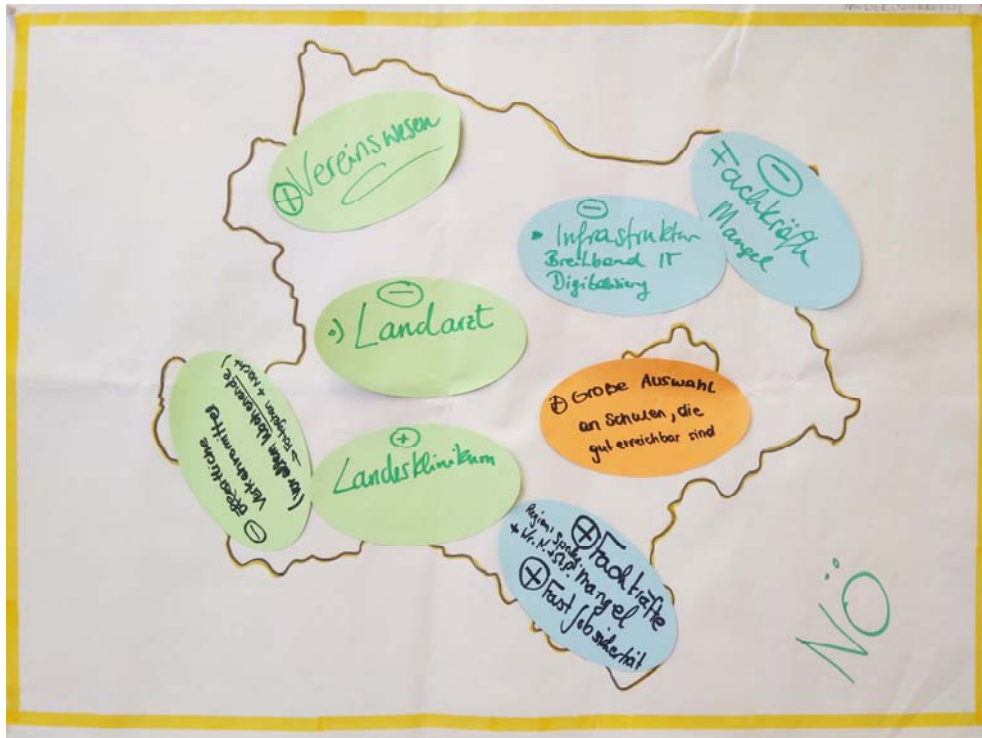 ⊕ Vereinswesen
⊖
Fachkräfte
Mangel
⊖
• Infrastruktur
Breitband IT
Digitalisierung
⊖
•) Landarzt
⊖ öffentliche
Verkehrsmittel
(vor allem Wochenende)
↳ Feiertagen + Nacht
⊕ Große Auswahl
an Schulen, die
gut erreichbar sind
⊕
Landesklinikum
⊕ Fachkräfte
mangel
+ Wr. N. + St. P.
⊕ Fast Jobsicherheit
NÖ